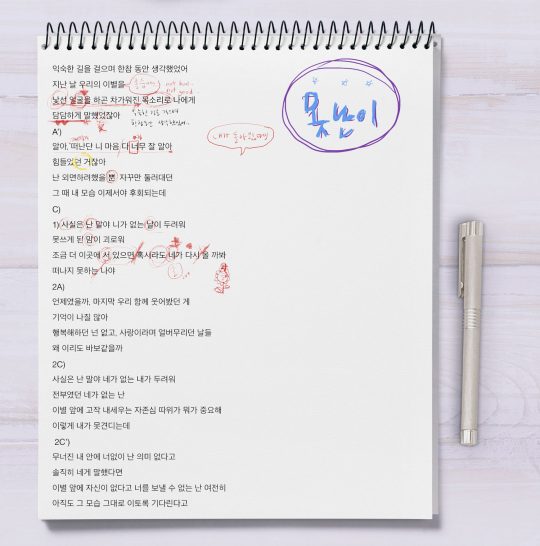 익숙한 길을 걸으며 한참 동안 생각했었어
지난 날 우리의 이별을
낯선 얼굴을 하곤 차가워진 목소리로 나에게
담담하게 말했었잖아
A')
말야, 떠난단 니 마음 다 너무 잘 알아
힘들었던 거잖아
난 외면하려했을 뿐 자꾸만 둘러대던
그 때 내 모습 이제서야 후회되는데
C)
1) 사실은 난 말야 니가 없는 날이 두려워
못쓰게 된 맘이 괴로워
조금 더 이곳에 서 있으면 혹시라도 네가 다시 올 까봐
떠나지 못하는 나야
2A)
언제였을까, 마지막 우리 함께 웃어봤던 게
기억이 나질 않아
행복해하던 넌 없고, 사랑이라며 얼버무리던 날들
왜 이리도 바보같을까
2C)
사실은 난 말야 네가 없는 내가 두려워
전부였던 네가 없는 난
이별 앞에 고작 내세우는 자존심 따위가 뭐가 중요해
이렇게 내가 못견디는데
2C')
무너진 내 안에 너없이 난 의미 없다고
솔직히 네게 말했다면
이별 앞에 자신이 없다고 너를 보낼 수 없는 난 여전히
아직도 그 모습 그대로 이토록 기다린다고
못난이